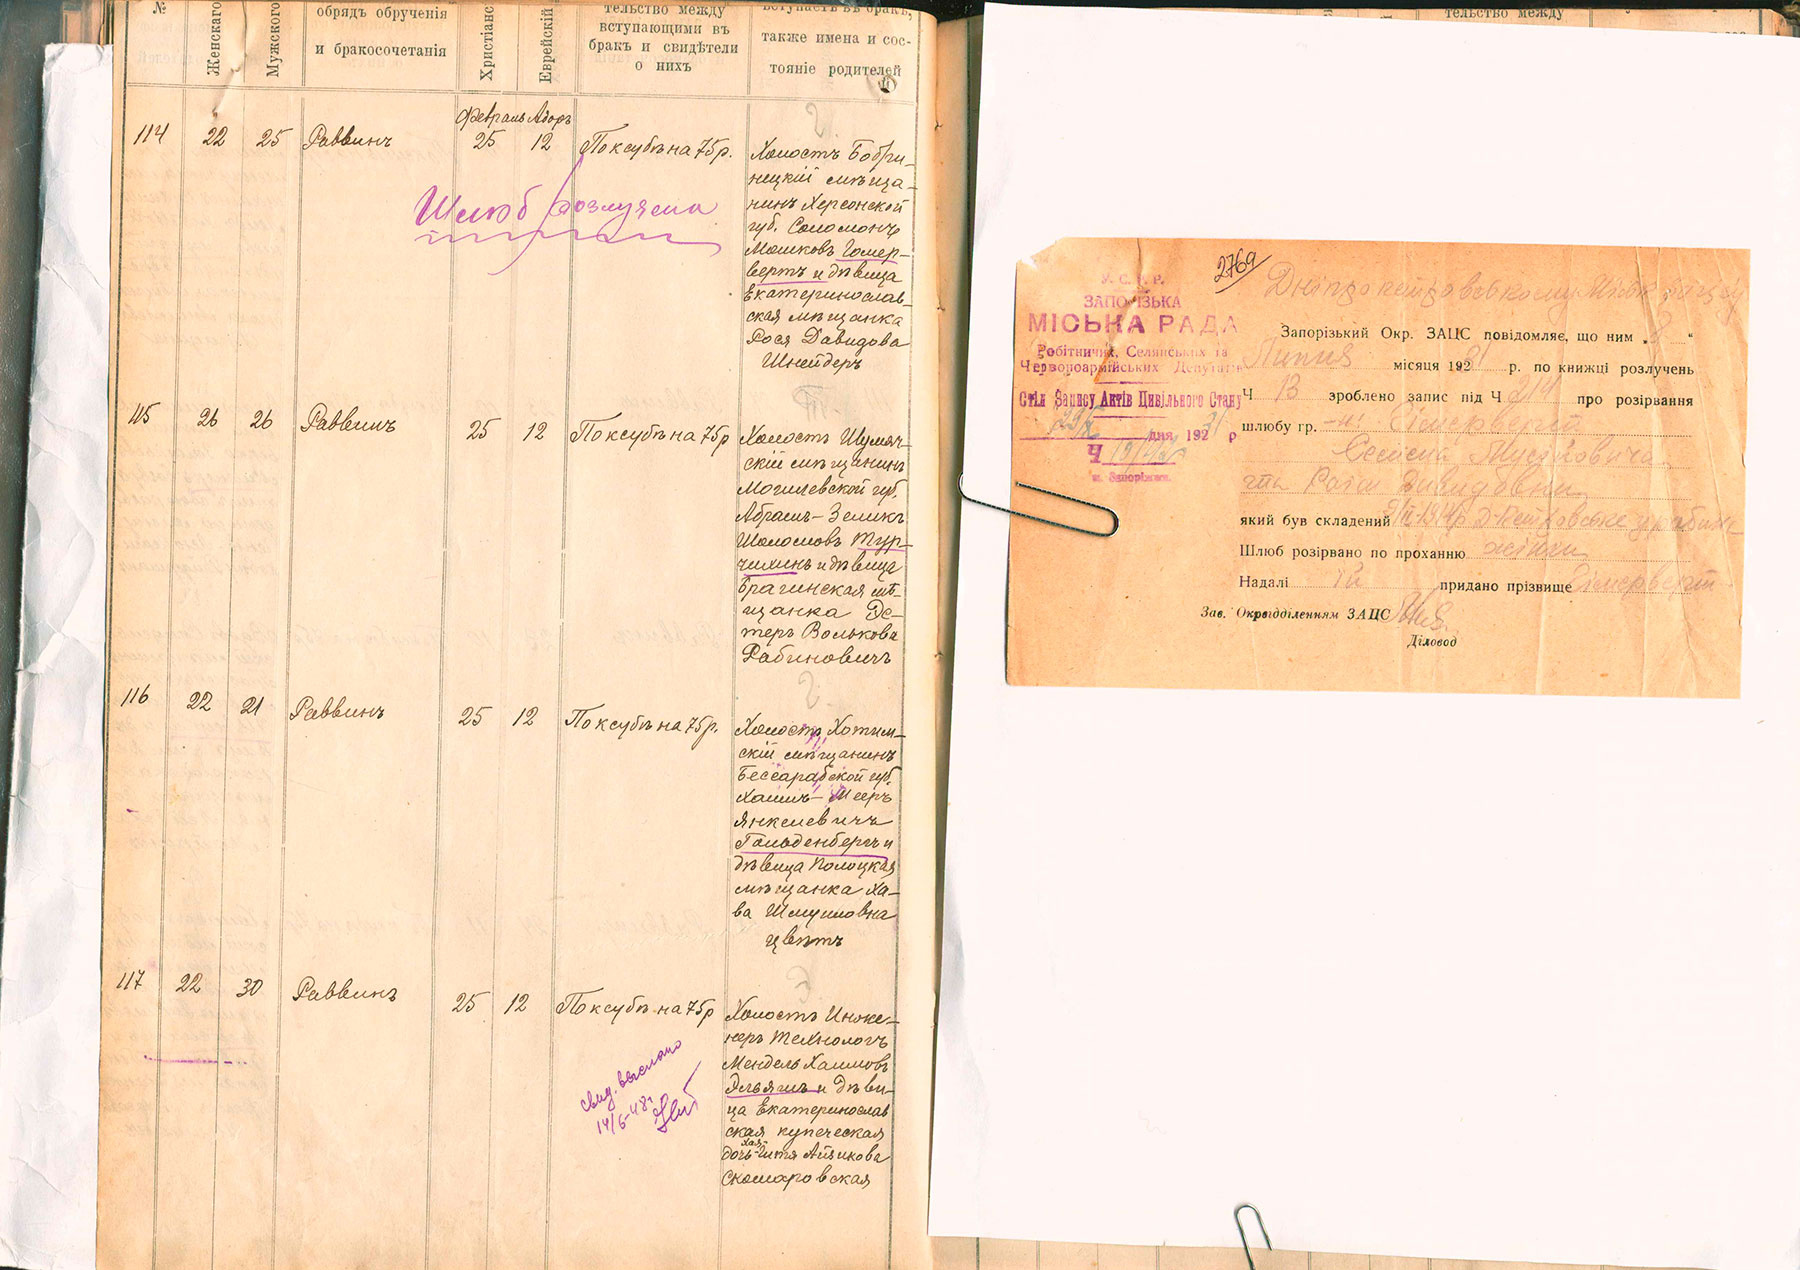 №
Женскаго
Мужского
обрядъ обрученія
и бракосочетанія
Христіанс
Еврейскій
тельство между
вступающими въ
бракъ и свидѣтели
о нихъ
вступаетъ въ бракъ,
также имена и сос-
тояніе родителей
Февраль Адоръ
114 22 25 Раввинъ 25 12 По ксубѣ на 75 р.
Холостъ Бобри-
нецкій мѣща-
нинъ Херсонской
губ. Соломонъ
Мошковъ Гомер-
вертъ и дѣвица
Екатеринослав-
ская мѣщанка
Рося Давидова
Шнейдеръ
Шлюб
115 26 26 Раввинъ 25 12 По ксубѣ на 75 р
Холостъ Шумяч-
скій мѣщанинъ
Могилевской губ.
Абрамъ-Зеликъ
Шоломовъ Тур-
чихинъ и дѣвица
Брагинская мѣ-
щанка Эс-
теръ Волькова
Рабиновичъ
116 22 21 Раввинъ 25 12 По ксубѣ на 75 р.
Холостъ Хотим-
скій мѣщанинъ
Бессарабской губ.
Хаимъ-Мееръ
Янкелевичъ
Гольденбергъ и
дѣвица Полоцкая
мѣщанка Ха-
ва Шмуиловна
Цвѣтъ
117 22 30 Раввинъ 25 12 По ксубѣ на 75 р
Холостъ Инже-
неръ Технологъ
Мендель Хаимовъ
Эльяшъ и дѣви-
ца Екатеринослав
ская купеческая
дочь Айзикова
Скомаровская
свид. выслано
14/6-48г
2769
У.С.Р.Р.
ЗАПОРІЗЬКА
МІСЬКА РАДА
Робітничих, Селянських та
Червоноармійських Депутатів
Стіл Запису Актів Цивільного Стану
дня 192 р
Ч
м. Запоріжжя.
Дніпропетровському
Запорізький Окр. ЗАЦС повідомляє, що ним „8“
Липня місяця 1931 р. по книжці розлучень
Ч 13 зроблено запис під Ч 214 про розірвання
шлюбу гр.
та Рози Давидовни
який був складений
Шлюб розірвано по проханню жінки
Надалі їй придано прізвище
Зав. Окрвідділенням ЗАЦС
Діловод
тельство между